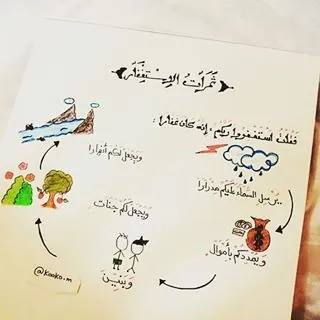 ثمرات الاستغفار
فقلت استغفروا ربكم إنه كان غفارا :
يرسل السماء عليكم مدرارا..
ويمددكم بأموال
وبنين
ويجعل لكم جنات
ويجعل لكم أنهارا
@kooko.m